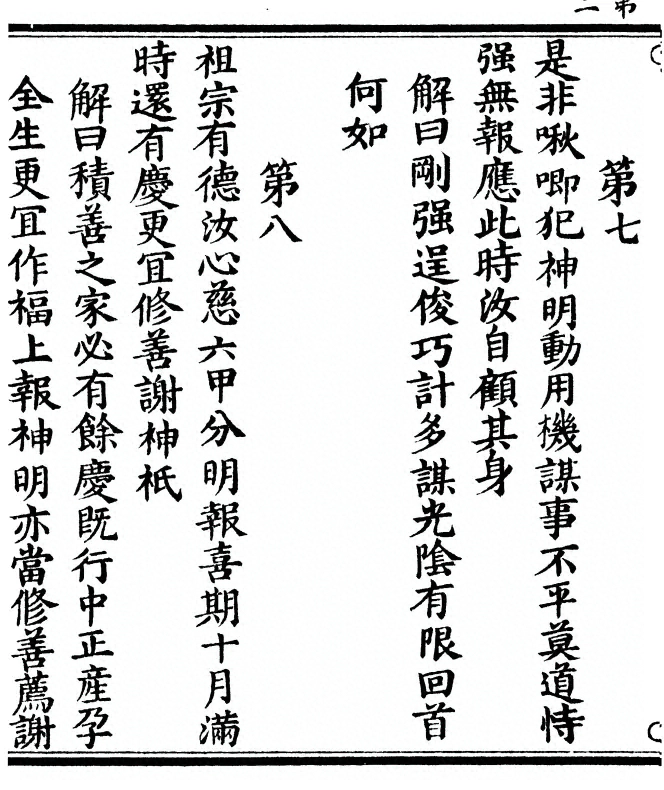 第七
是非啾唧犯神明動用機謀事不平莫道恃
强無報應此時汝自顧其身
解曰剛强逞俊巧計多謀光陰有限回首
何如
第八
祖宗有德汝心慈六甲分明報喜期十月滿
時還有慶更冝修善謝神祇
解曰積善之家必有餘慶既行中正產孕
全生更冝作福上報神明亦當修善薦謝